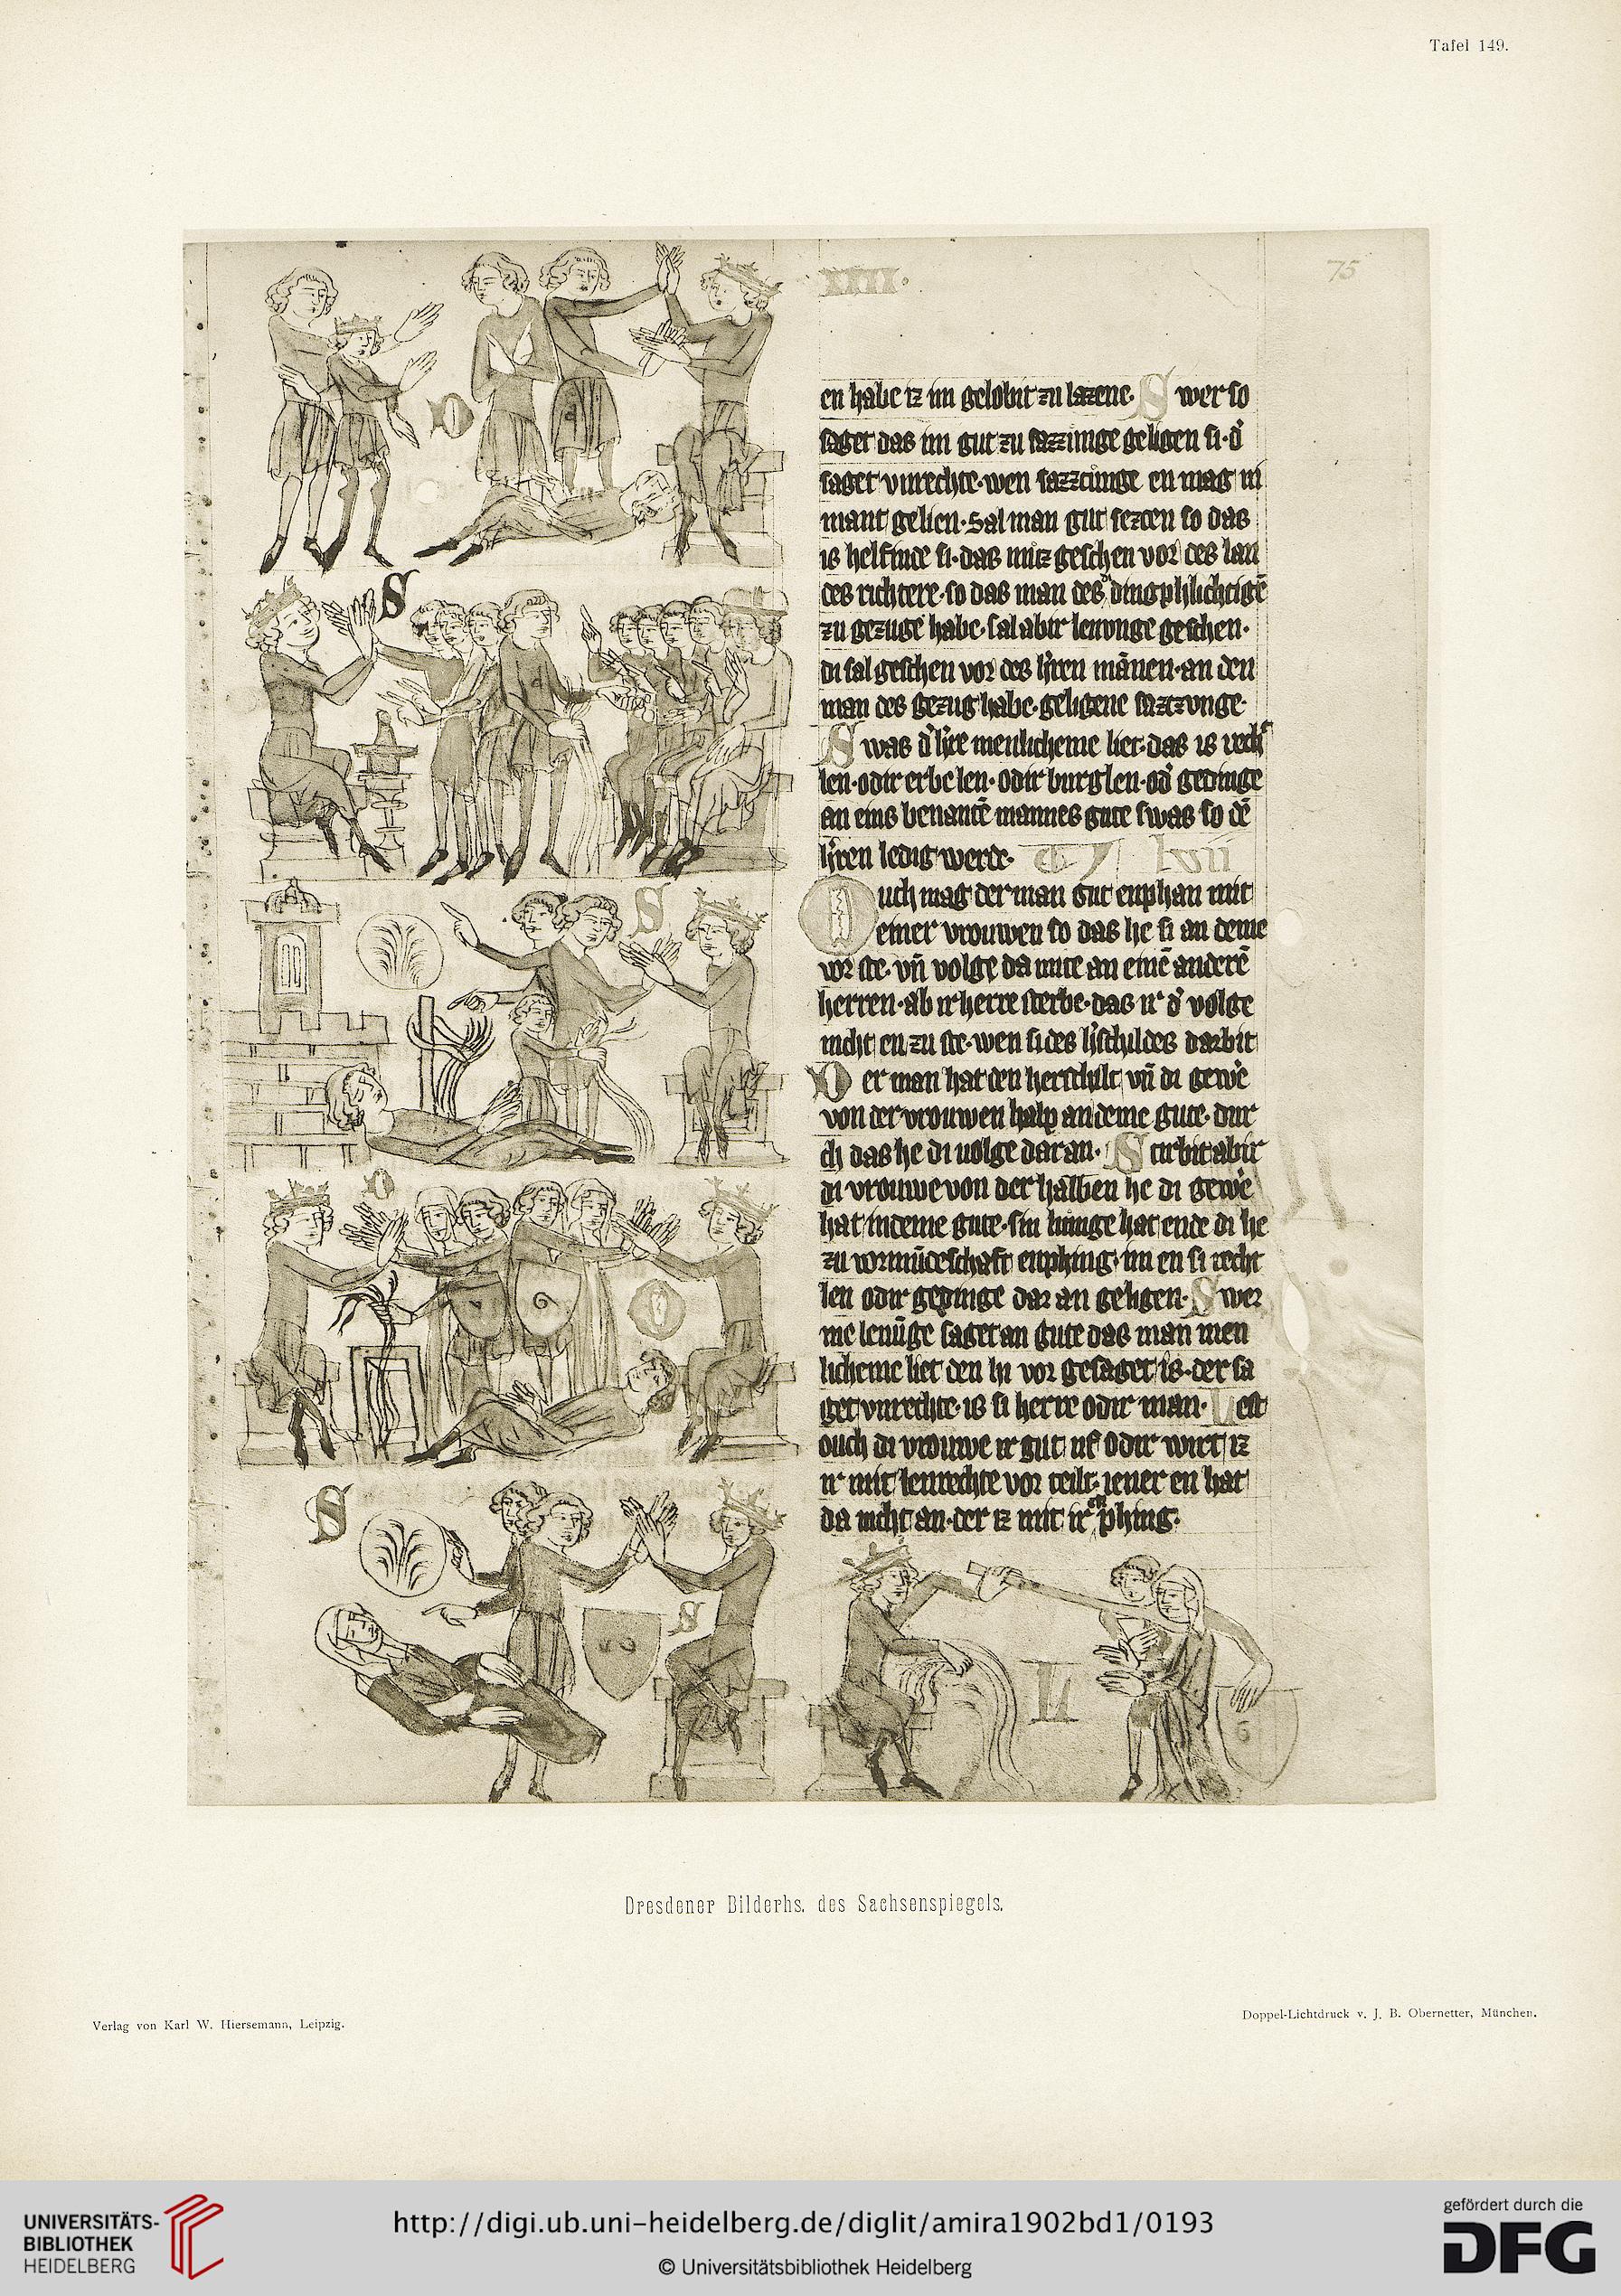 Tafel 149.
XXII.
75
en habe iz im gelobit zu lazene. Swer so
saget das im gut zu sazzunge geligen si. d'
saget vnrechte. wen sazzcunge en mag ni
mant gelien. Sal man gut sezcen so das
is helfince si. das muz geschen vor des lan
des richtere. so das man des dingphlichtigē
zu gezuge habe. sal abir lenunge geschen.
di sal geschen vor des h'ren mānen. an den
man des gezug habe. geligene sazczunge.
Swas d' h're menlicheme liet. das is recht
len. odir erbe len. odir burglen. od' gedinge
an eins benantē mannes gute swas so dē
h'ren ledig werde. lvii
Ouch mag der man gut enphan mit
einer vrouwen so das he si an deme
vor ste. vn̄ volge da mite an einē anderē
herren. ab ir herre sterbe. das ir d' volge
nicht en zu ste. wen si des h'schildes darbit
Der man hat den herschilt vn̄ di gewe
von der vrouwen halp an deme gute. dur
ch das he di uolge dar an. Stirbit abir
di vrouwe von der halben he di gewe
hat in deme gute. sin lninge hat ende di he
zu vormūdeschaft enphing. im en si recht
len odir gedinge dar an geligen. Swer
me lenūge saget an gute das man men
licheme liet den hi vor gesaget is. der sa
get vnrechte. is si herre odir man. Lest
ouch di vrouwe ir gut uf odir wirt iz
ir mit lenrechte vor teilt. iener en hat
da nicht an. der iz mit ir enphing.
D
S
S
D
O
S
S
U
Dresdener Bilderhs. des Sachsenspiegels.
Verlag von Karl W. Hiersemann, Leipzig.
Doppel-Lichtdruck v. J. B. Obernetter, München.
UNIVERSITÄTS-
BIBLIOTHEK
HEIDELBERG
http://digi.ub.uni-heidelberg.de/diglit/amira1902bd1/0193
© Universitätsbibliothek Heidelberg
gefördert durch die
DFG